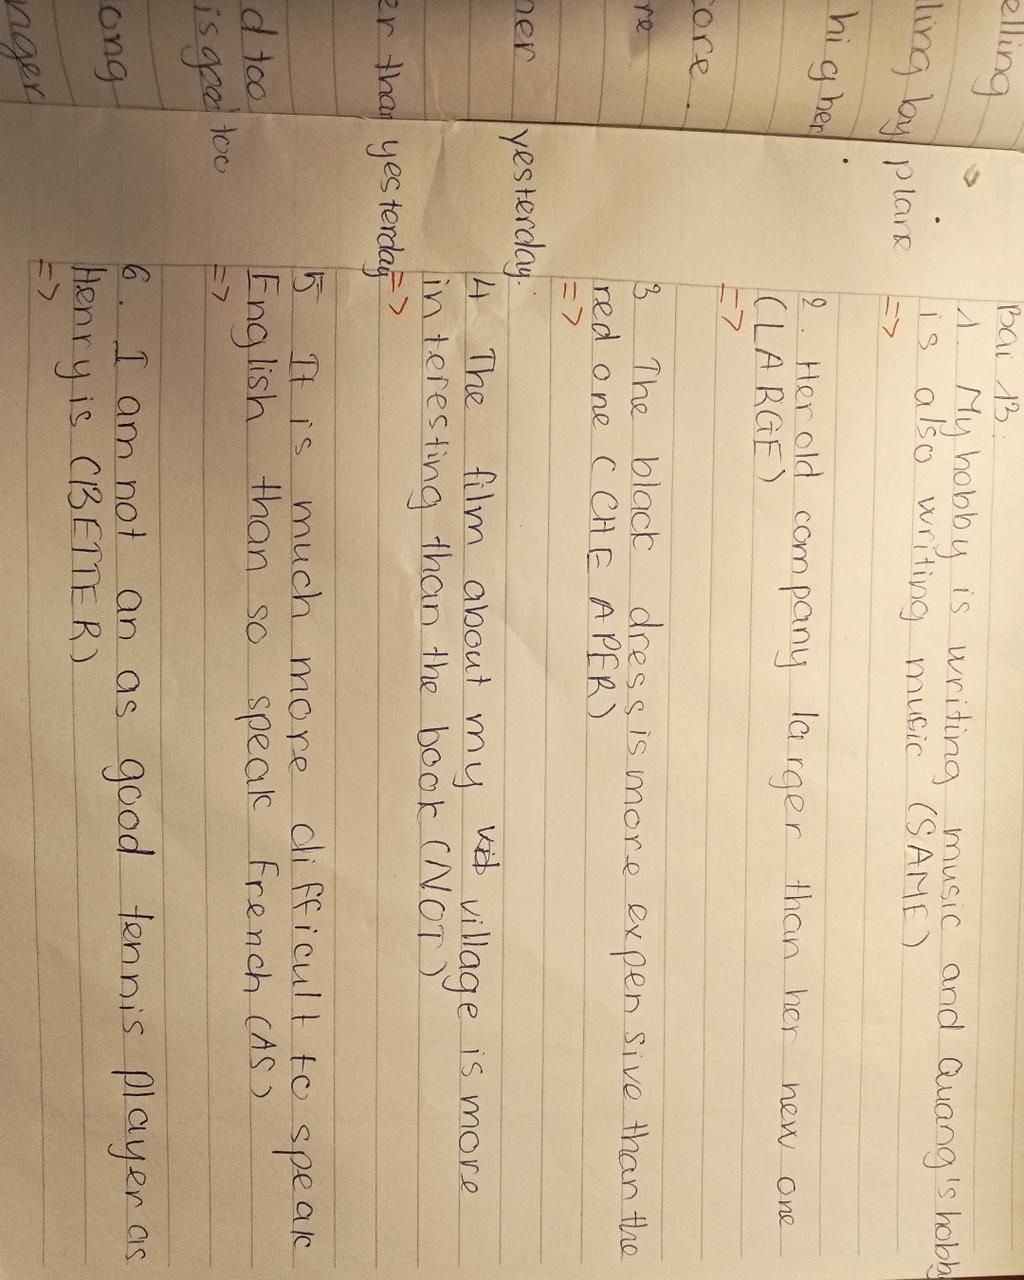 elling
lling by plane
higher
ore.
re
her yesterday.
er than yesterday
d too
is good too
ong
nger
Bài 13:
1. My hobby is writing music and Quang's hobby
is also writing music (SAME)
=>
2. Her old company larger than her new one
(LARGE)
=>
3 The black dress is more expensive than the
red one (CHEAPER)
=>
4 The film about my village is more
interesting than the book (NOT)
=>
5 It is much more difficult to speak
English than so speak French (AS)
=>
6. I am not an as good tennis player as
Henry is (BETTER)
=>